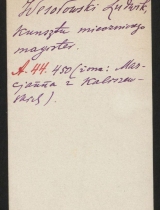 Wesołowski Ludwik,
kunsztu mieczniczego
magister.
A. 44. 450 (żona: Mar-
cjanna z Kaliszew-
skich).